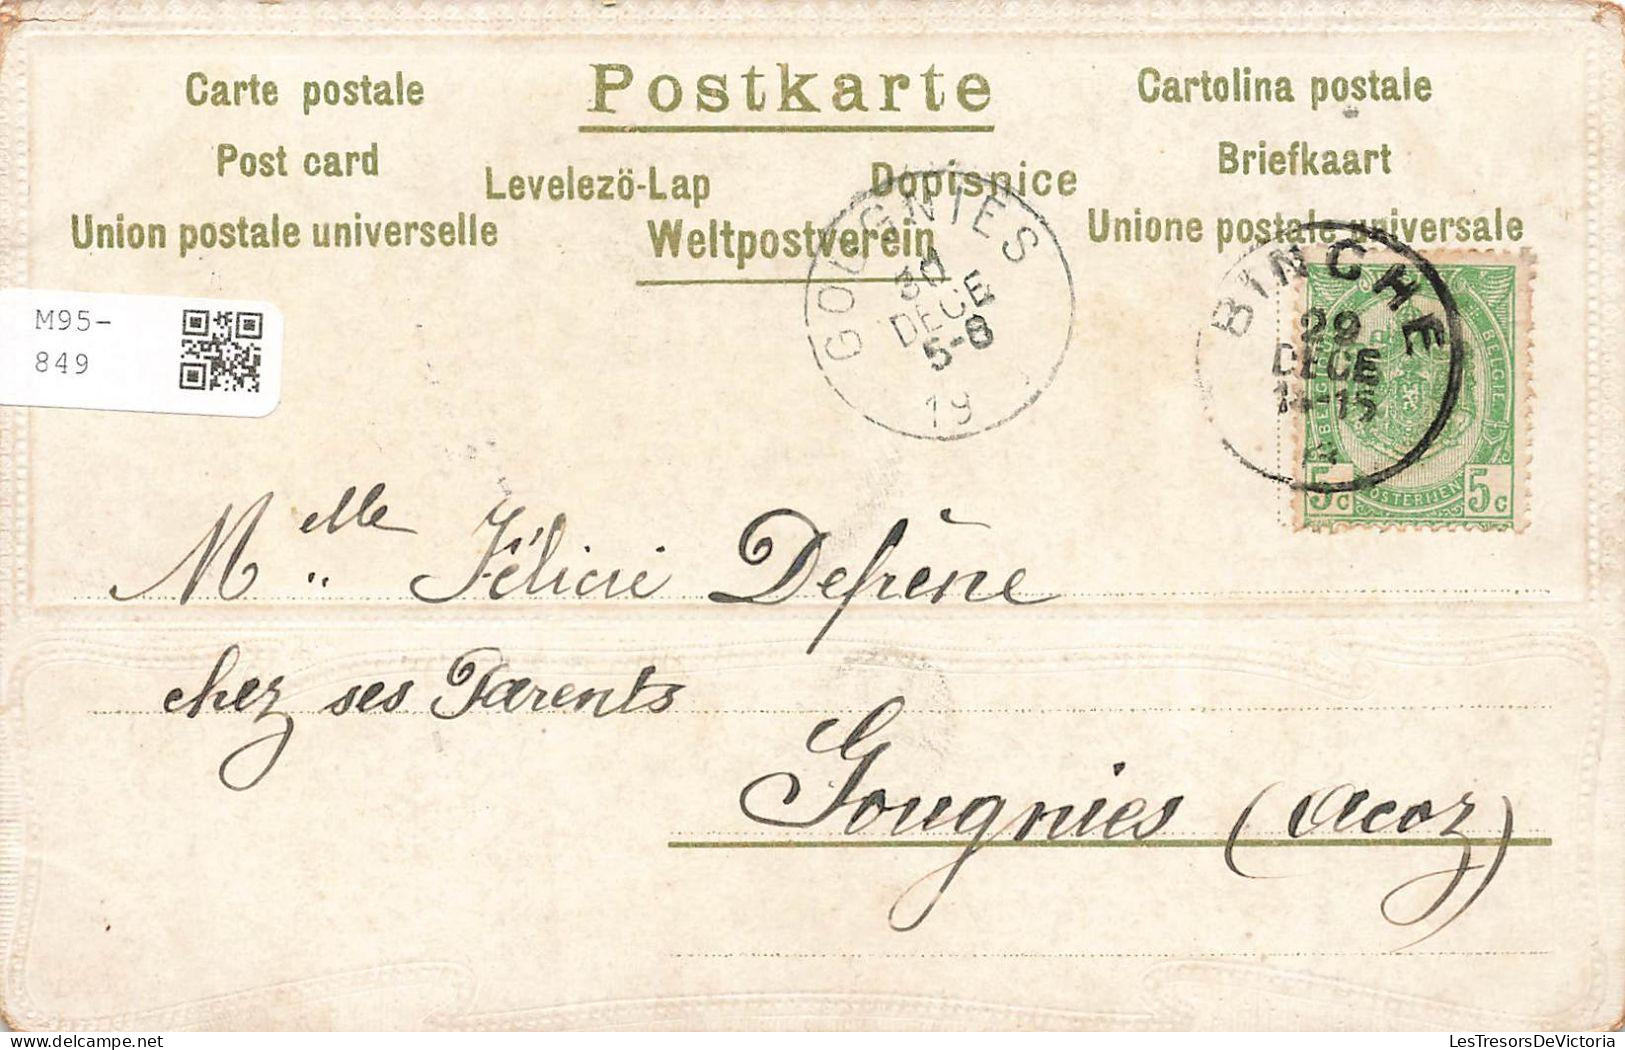 Carte postale
Postkarte
Cartolina postale
Post card
Levelezö-Lap
Dopisnice
Briefkaart
Union postale universelle
Weltpostverein
Unione postale universale
M95-
849
GOUGNIES
30
DECE
5-8
19
BINCHE
29
DECE
14-15
5c 5c
Melle Félicie Defrène
chez ses Parents
Gougnies (Acoz)
LesTresorsDeVictoria